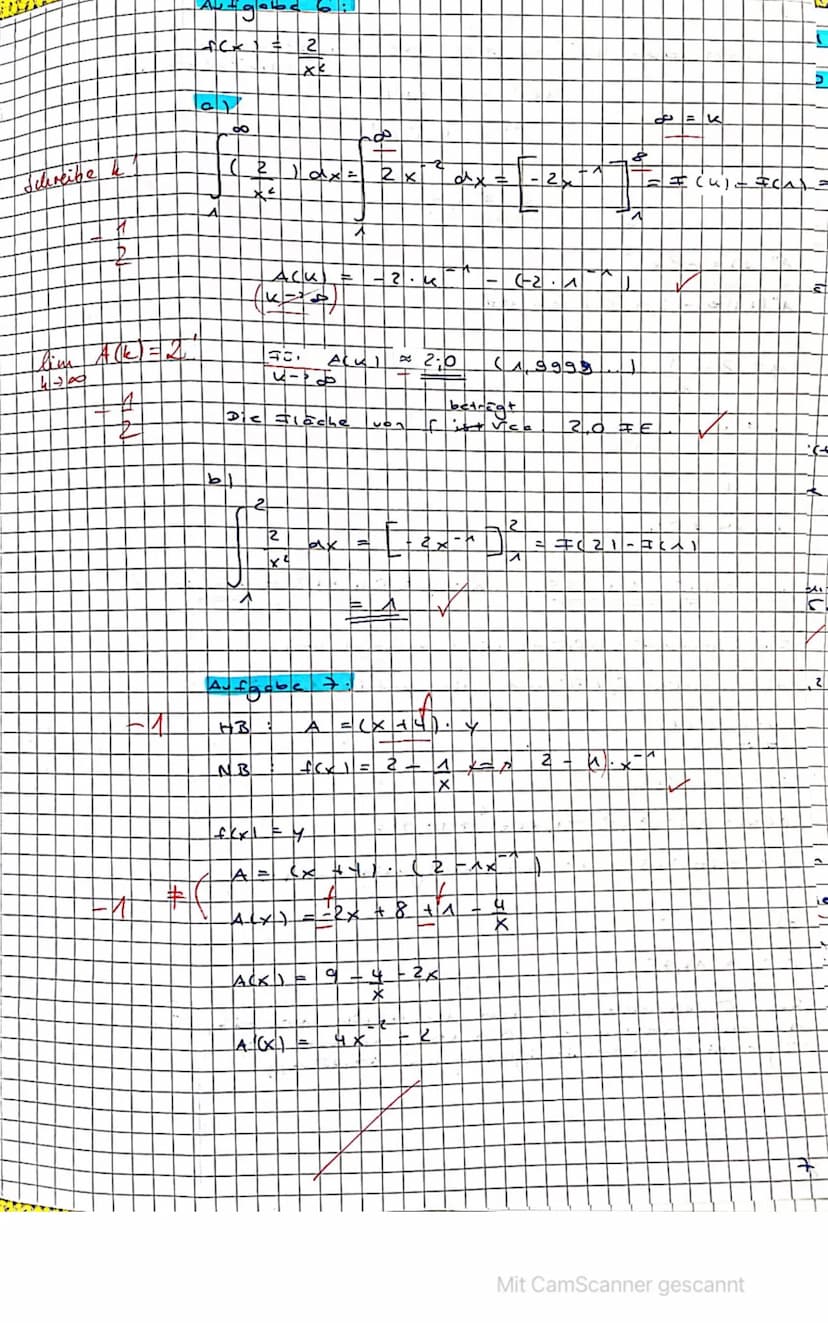 Aufgabe 6:
f(x) = 2/x²
a)
∞ = k
Schreibe k!
∫₁^∞ (2/x²) dx = ∫₁^∞ 2x⁻² dx = [-2x⁻¹]₁^∞ = F(k) - F(1) =
-1/2
A(k) = -2·k⁻¹ - (-2·1⁻¹) ✓
(k->∞)
lim A(k) = 2!
k->∞
A(k) ≈ 2,0 (1,9999...)
k->∞
-1/2
beträgt
Die Fläche von f ist ca. 2,0 FE. ✓
b)
∫₁² 2/x² dx = [-2x⁻¹]₁² = F(2) - F(1)
= 1 ✓
Aufgabe 7:
-1 HB: A = (x+4)·y f
NB: f(x) = 2 - 1/x <=> 2 - (1)·x⁻¹ ✓
f(x) = y
A = (x+4)·(2-1x⁻¹)
-1 ≠ ( A(x) = -2x + 8 + 1 - 4/x f f
A(x) = 9 - 4/x - 2x
A'(x) = 4x⁻² - 2
7
Mit CamScanner gescannt